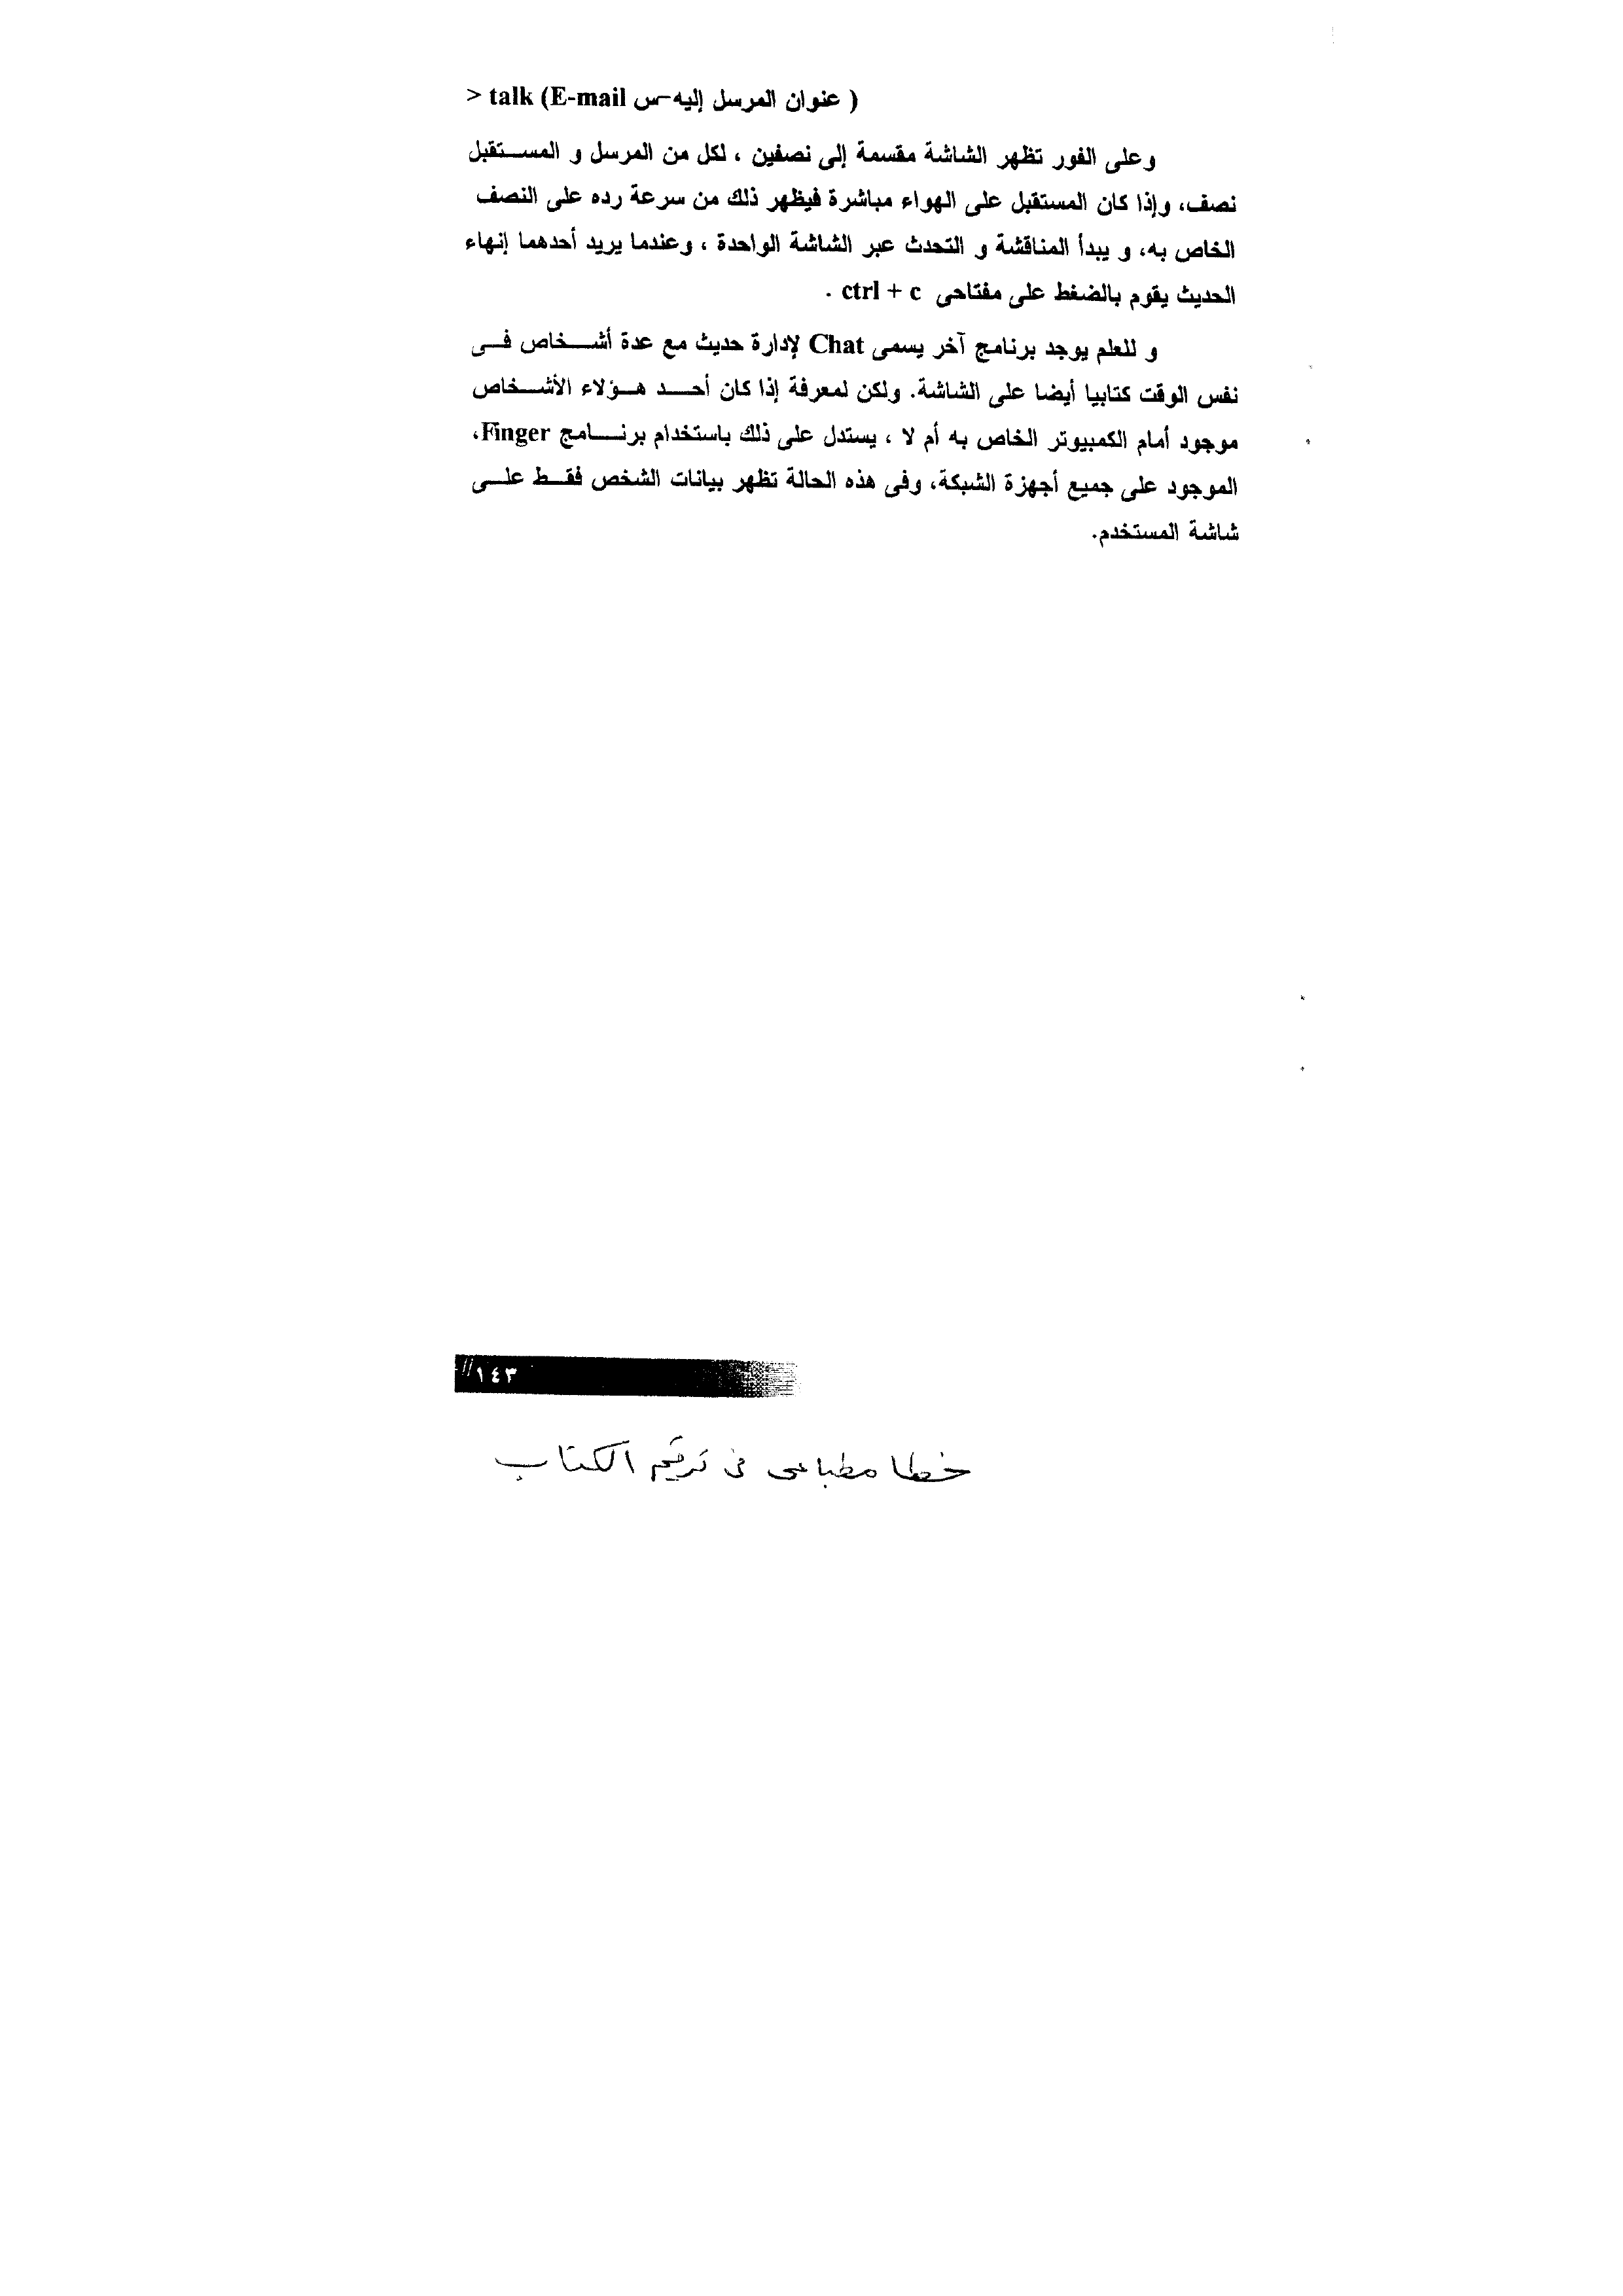 > talk (E-mail عنوان المرسل إليه-س )
وعلى الفور تظهر الشاشة مقسمة إلى نصفين ، لكل من المرسل و المستقبل
نصف، وإذا كان المستقبل على الهواء مباشرة فيظهر ذلك من سرعة رده على النصف
الخاص به، و يبدأ المناقشة و التحدث عبر الشاشة الواحدة ، وعندما يريد أحدهما إنهاء
الحديث يقوم بالضغط على مفتاحى ctrl + c .
و للعلم يوجد برنامج آخر يسمى Chat لإدارة حديث مع عدة أشخاص فى
نفس الوقت كتابيا أيضا على الشاشة. ولكن لمعرفة إذا كان أحد هؤلاء الأشخاص
موجود أمام الكمبيوتر الخاص به أم لا ، يستدل على ذلك باستخدام برنامج Finger،
الموجود على جميع أجهزة الشبكة، وفى هذه الحالة تظهر بيانات الشخص فقط على
شاشة المستخدم.
//١٤٣
خطا مطباعى فى ترقيم الكتاب